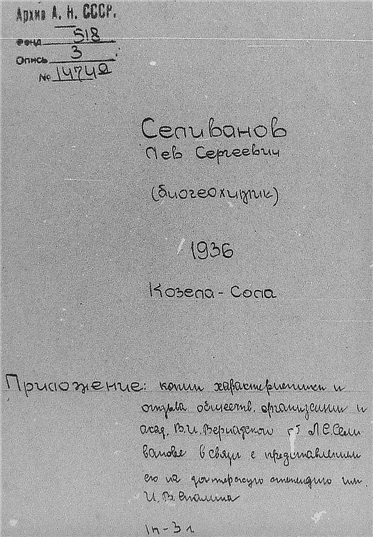 Архив А. Н. СССР.
Фонд 518
Опись 3
№ 1474
Селиванов
Лев Сергеевич
(биогеохимик)
1936
Козела - Сола
Приложение: копии характеристики и
отзыва обществ. организации и
акад. В.И. Вернадского о Л.С. Сели
ванове в связи с представлением
его на докторскую стипендию им.
И. В. Сталина
1п - 3 л